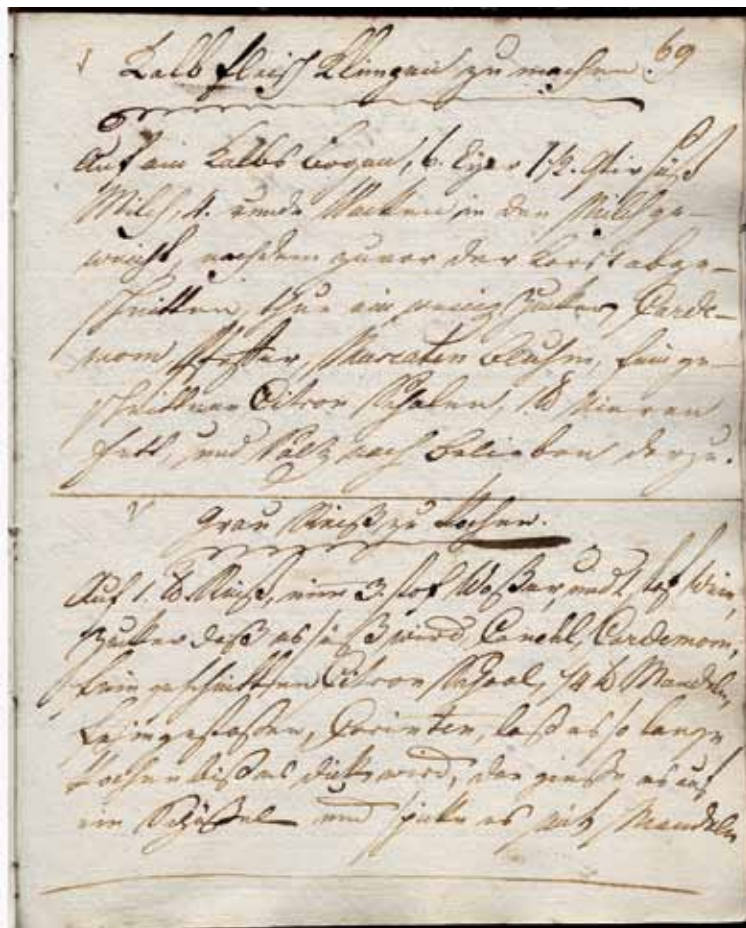 69
Kalb fleisch Klimpen zu machen.
Auf ein Kalbs Bogen, 6. Eyer 1½. Stof süß
Milch, 4. runde Wecken in der Milch ge-
weicht, nachdem zuvor der Korst abge-
schnitten, thue ein wenig Zucker, Carde-
mom Pfeffer, Muscaten bluhm, fein ge-
schnittene Citron Schalen, 1 ℔ Nieren
fett, und Saltz nach belieben derzu.
Grau Reiß zu Kochen.
Auf 1. ℔ Reiß, nim 3. stof Waßer, und 1. stof Wein,
Zucker daß es süß wird Canehl, Cardemom,
fein geschnitten Citron Schaal, 1/4 ℔ Mandeln,
kleingestoßen, Corinten, laß es so lange
Kochen biß es dick wird, dan gieße es auf
ein Schüßel und spicke es mit Mandeln